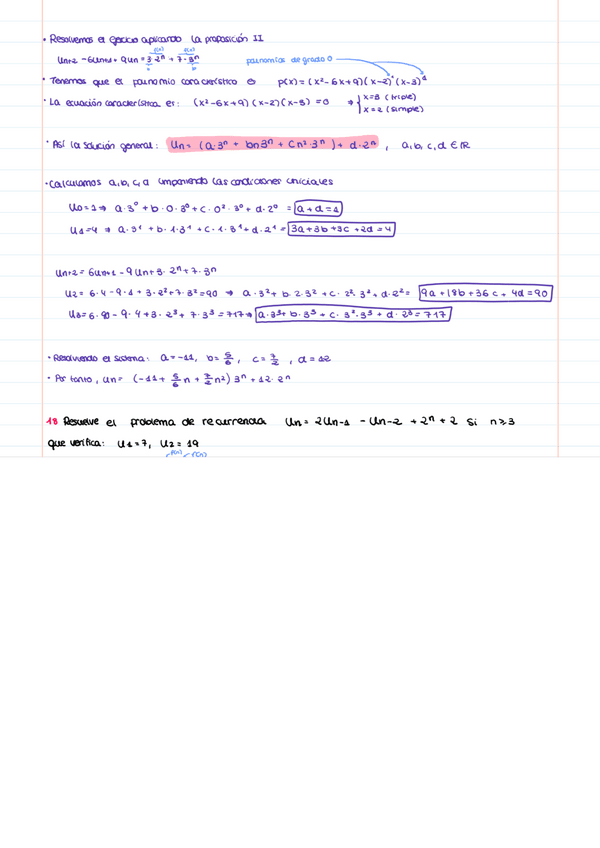 • Resolvemos el ejercicio aplicando la proposición II
P(n) P(n)
Un+2 - 6Un+1 + 9Un = 3·2ⁿ + 7·3ⁿ polinomios de grado 0
• Tenemos que el polinomio característico es p(x) = (x²-6x+9)(x-2)¹(x-3)¹
• La ecuación característica es: (x²-6x+9)(x-2)(x-3) = 0 ⇒ { x=3 (triple)
x=2 (simple)
• Así la solución general: Un = (a·3ⁿ + bn3ⁿ + cn²·3ⁿ) + d·2ⁿ , a,b,c,d ∈ ℝ
• Calculamos a,b,c,d imponiendo las condiciones iniciales
U0=1 ⇒ a·3⁰ + b·0·3⁰ + c·0²·3⁰ + d·2⁰ = a+d=1
U1=4 ⇒ a·3¹ + b·1·3¹ + c·1·3¹ + d·2¹ = 3a+3b+3c+2d=4
Un+2 = 6Un+1 - 9Un + 3·2ⁿ + 7·3ⁿ
U2 = 6·4 - 9·1 + 3·2² + 7·3² = 90 ⇒ a·3² + b·2·3² + c·2²·3² + d·2² = 9a+18b+36c+4d=90
U3 = 6·90 - 9·4 + 3·2³ + 7·3³ = 717 ⇒ a·3³ + b·3³ + c·3²·3³ + d·2³ = 717
• Resolviendo el sistema: a=-11, b=5/6, c=7/2, d=12
• Por tanto, Un = (-11 + 5/6 n + 7/2 n²) 3ⁿ + 12·2ⁿ
18 Resuelve el problema de recurrencia Un = 2Un-1 - Un-2 + 2ⁿ + 2 si n≥3
que verifica: U1=7, U2=19
P(n) P(n)